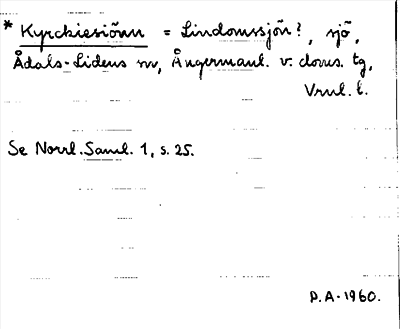 * Kyrckiesiönn = Lindomssjön?, sjö,
Ådals-Lidens sn, Ångermanl. v. doms. tg,
Vrnl. l.
Se Norrl. Saml. 1, s. 25.
P.A-1960.